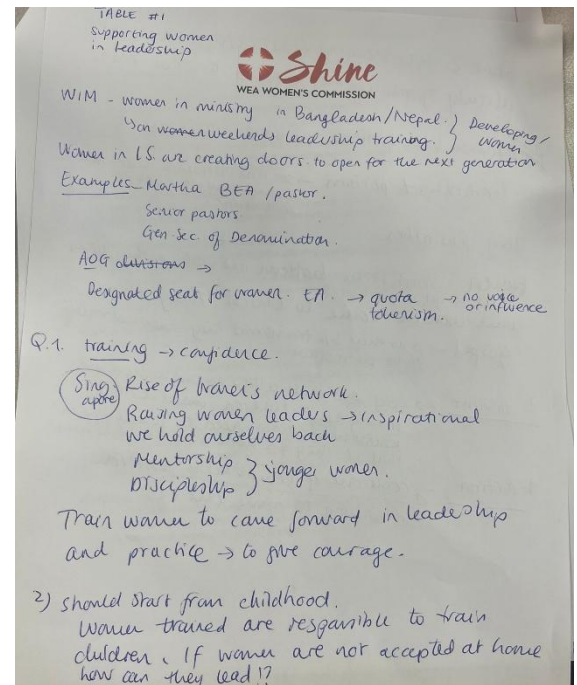 TABLE #1
Supporting women
in leadership
Shine
WEA WOMEN'S COMMISSION
WIM - women in ministry in Bangladesh/Nepal. } Developing/
↳ on women weekends leadership training. } women
Women in LS. are creating doors to open for the next generation
Examples - Martha BEA / pastor.
Senior pastors
Gen. Sec. of Denomination.
AOG divisions →
Designated seat for women. EA. → quota → no voice
tokenism. or influence
Q.1. training → confidence.
Singapore Rise of women's network.
Raising women leaders → inspirational
we hold ourselves back
Mentorship } younger women.
Discipleship
Train women to come forward in leadership
and practice → to give courage.
2) should start from childhood.
Women trained are responsible to train
children. If women are not accepted at home
how can they lead!?